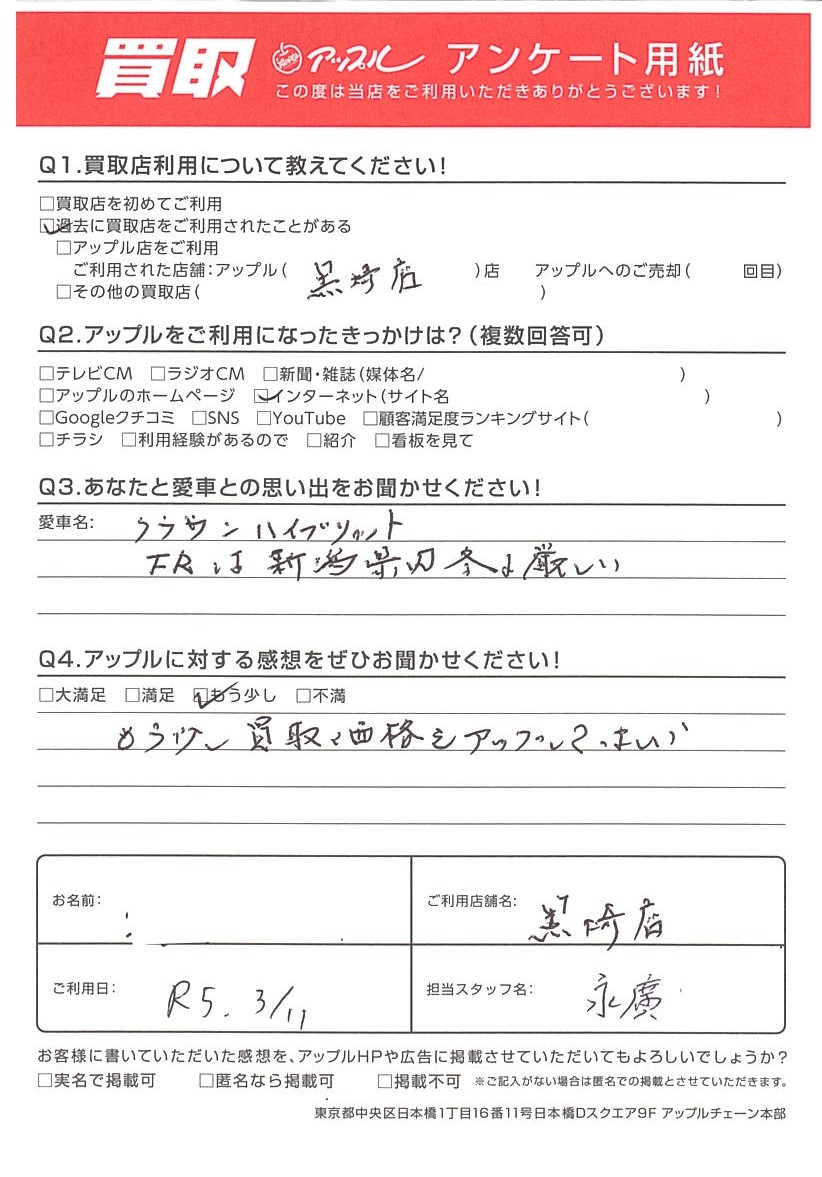 買取 アップル アンケート用紙
この度は当店をご利用いただきありがとうございます!
Q1.買取店利用について教えてください!
□買取店を初めてご利用
☑過去に買取店をご利用されたことがある
□アップル店をご利用
ご利用された店舗:アップル( 黒埼店 )店 アップルへのご売却( 回目)
□その他の買取店( )
Q2.アップルをご利用になったきっかけは?(複数回答可)
□テレビCM □ラジオCM □新聞・雑誌(媒体名/ )
□アップルのホームページ ☑インターネット(サイト名 )
□Googleクチコミ □SNS □YouTube □顧客満足度ランキングサイト( )
□チラシ □利用経験があるので □紹介 □看板を見て
Q3.あなたと愛車との思い出をお聞かせください!
愛車名: クラウンハイブリット
FRは新潟県内冬は厳しい
Q4.アップルに対する感想をぜひお聞かせください!
□大満足 □満足 ☑もう少し □不満
もう少し買取 価格をアップして
お名前:
ご利用店舗名: 黒埼店
ご利用日: R5. 3/11
担当スタッフ名: 永廣
お客様に書いていただいた感想を、アップルHPや広告に掲載させていただいてもよろしいでしょうか?
□実名で掲載可 □匿名なら掲載可 □掲載不可 ※ご記入がない場合は匿名での掲載とさせていただきます。
東京都中央区日本橋1丁目16番11号日本橋Dスクエア9F アップルチェーン本部